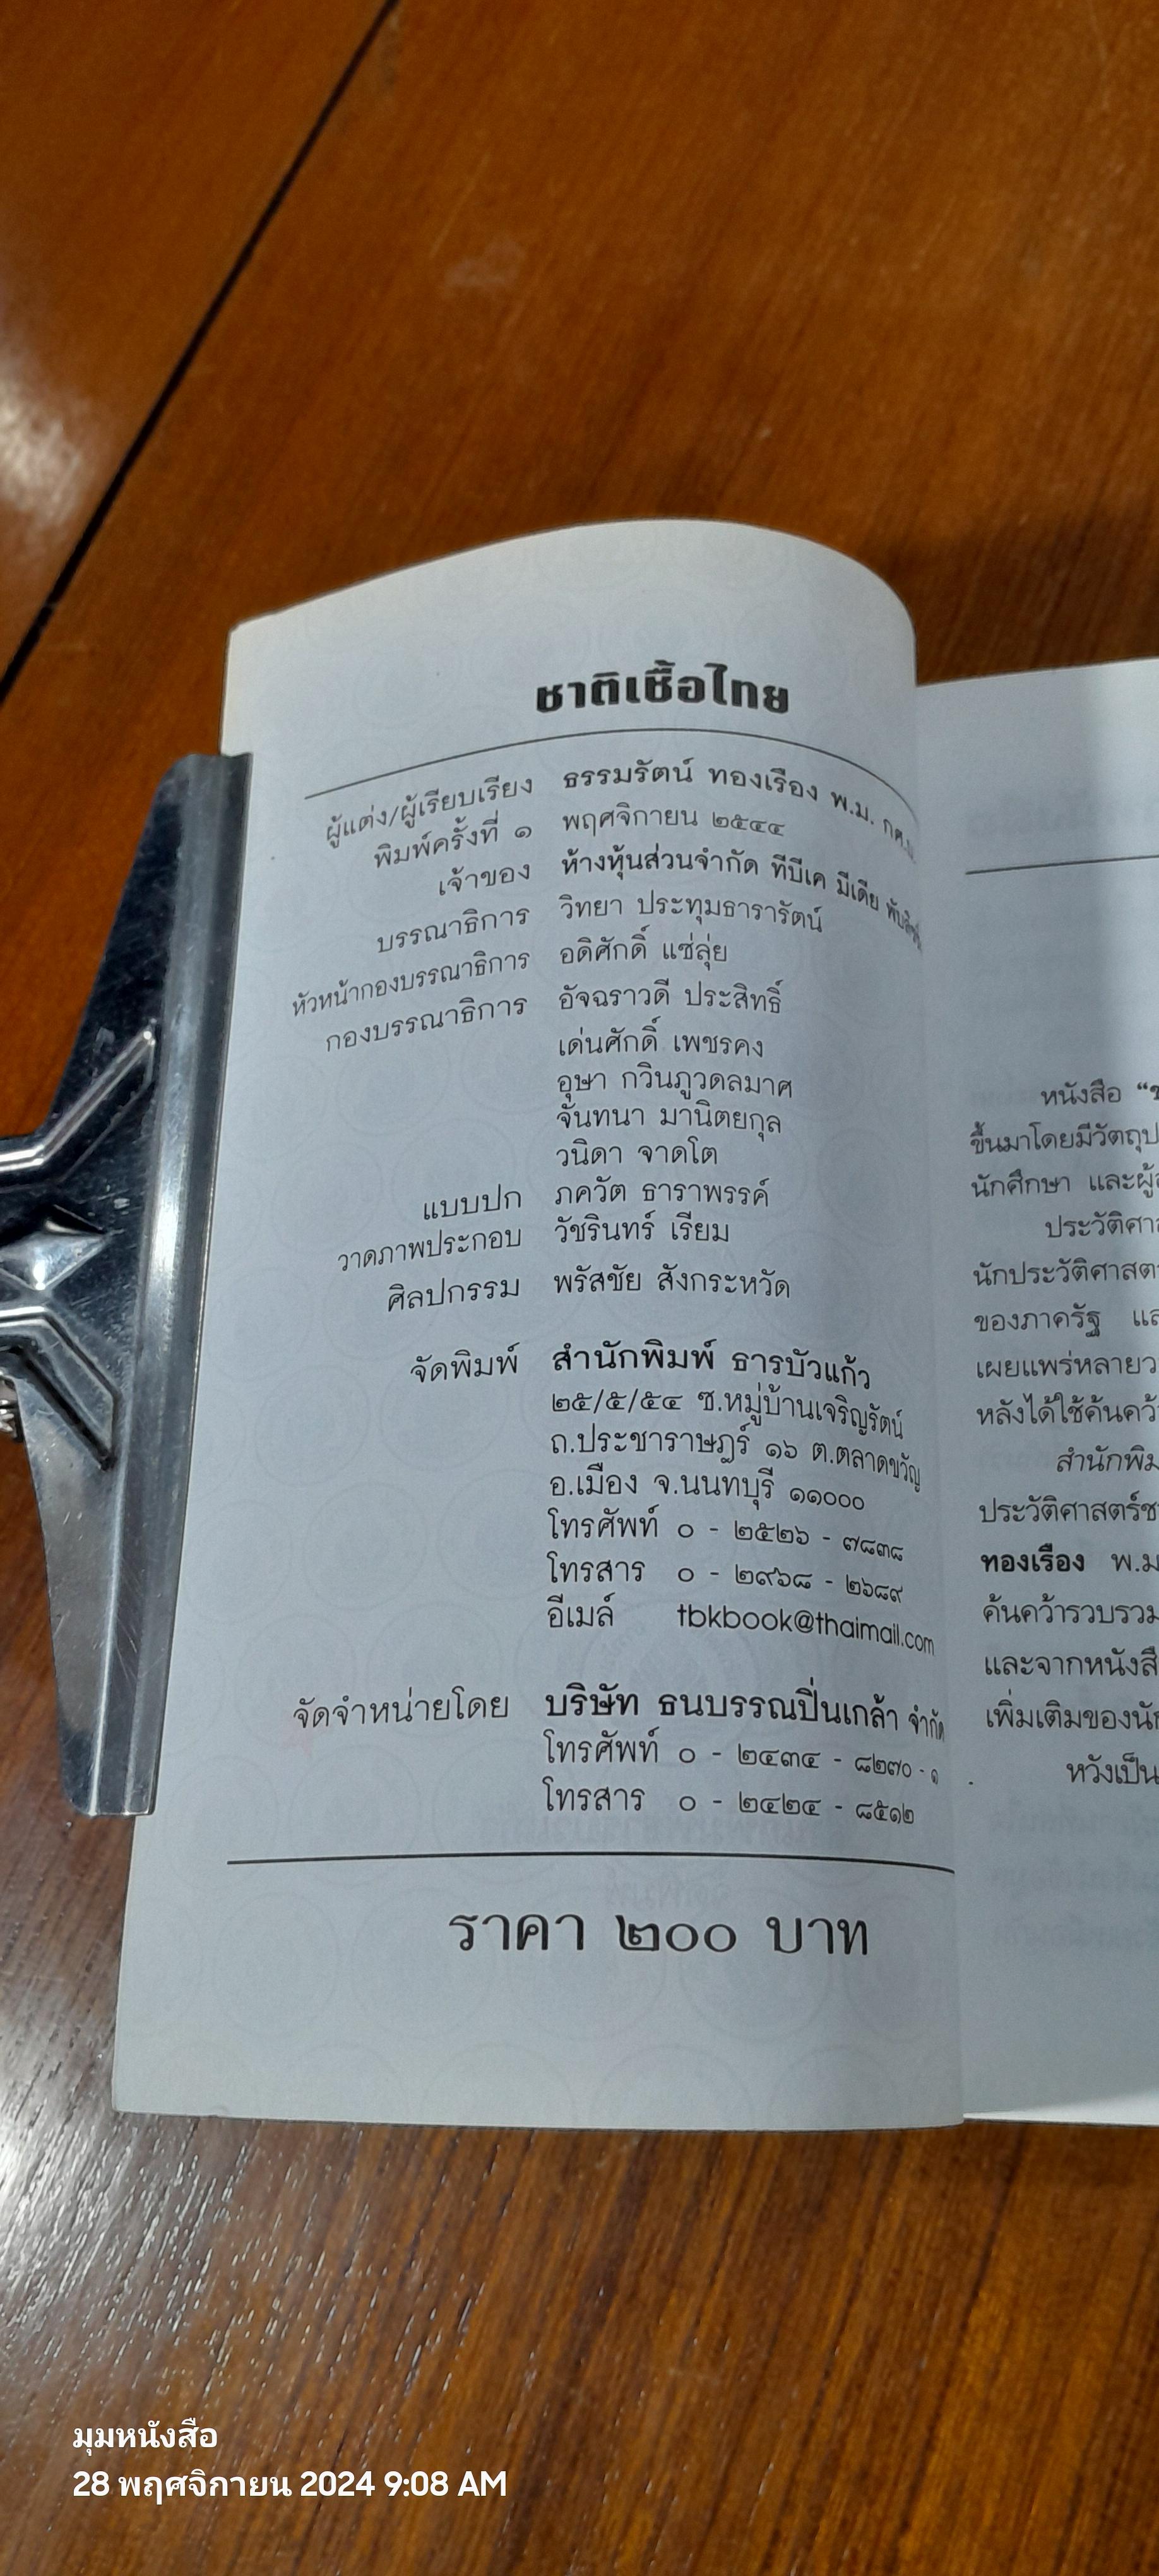 ชาติเชื้อไทย
ผู้แต่ง/ผู้เรียบเรียง ธรรมรัตน์ ทองเรือง พ.ม. กศ.บ.
พิมพ์ครั้งที่ ๑ พฤศจิกายน ๒๕๔๔
เจ้าของ ห้างหุ้นส่วนจำกัด ทีบีเค มีเดีย
บรรณาธิการ วิทยา ประทุมธารารัตน์
หัวหน้ากองบรรณาธิการ อดิศักดิ์ แซ่ลุ่ย
กองบรรณาธิการ อัจฉราวดี ประสิทธิ์
เด่นศักดิ์ เพชรคง
อุษา กวินภูวดลมาศ
จันทนา มานิตยกุล
วนิดา จาดโต
แบบปก ภควัต ธาราพรรค์
วาดภาพประกอบ วัชรินทร์ เรียม
ศิลปกรรม พรัสชัย สังกระหวัด
จัดพิมพ์ สำนักพิมพ์ ธารบัวแก้ว
๒๕/๕/๕๔ ซ.หมู่บ้านเจริญรัตน์
ถ.ประชาราษฎร์ ๑๖ ต.ตลาดขวัญ
อ.เมือง จ.นนทบุรี ๑๑๐๐๐
โทรศัพท์ ๐ - ๒๕๒๖ - ๗๘๓๘
โทรสาร ๐ - ๒๙๖๘ - ๒๖๘๙
อีเมล์ tbkbook@thaimail.com
จัดจำหน่ายโดย บริษัท ธนบรรณปิ่นเกล้า จำกัด
โทรศัพท์ ๐ - ๒๔๓๔ - ๘๒๗๐ - ๑
โทรสาร ๐ - ๒๔๒๔ - ๘๕๑๒
ราคา ๒๐๐ บาท
หนังสือ “ช
ขึ้นมาโดยมีวัตถุป
นักศึกษา และผู้
ประวัติศา
นักประวัติศาสตร
ของภาครัฐ แล
เผยแพร่หลายว
หลังได้ใช้ค้นคว้
สำนักพิม
ประวัติศาสตร์ช
ทองเรือง พ.ม
ค้นคว้ารวบรวม
และจากหนังสื
เพิ่มเติมของนัก
หวังเป็น
มุมหนังสือ
28 พฤศจิกายน 2024 9:08 AM